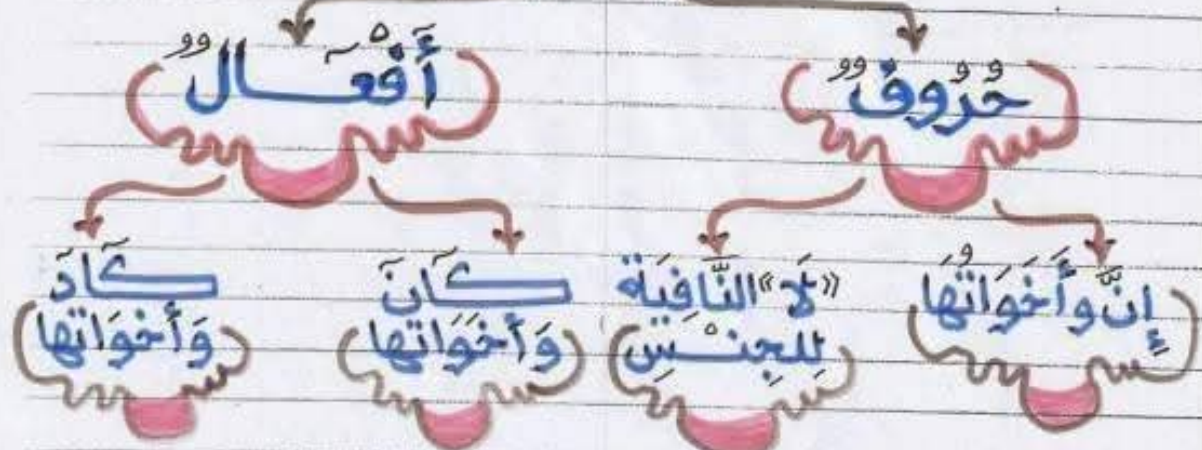 حُرُوفٌ
أَفْعَالٌ
إِنَّ وَأَخَوَاتُهَا
«لَا» النَّافِيَة
لِلْجِنْسِ
كَانَ
وَأَخَوَاتها
كَادَ
وَأَخوَاتها